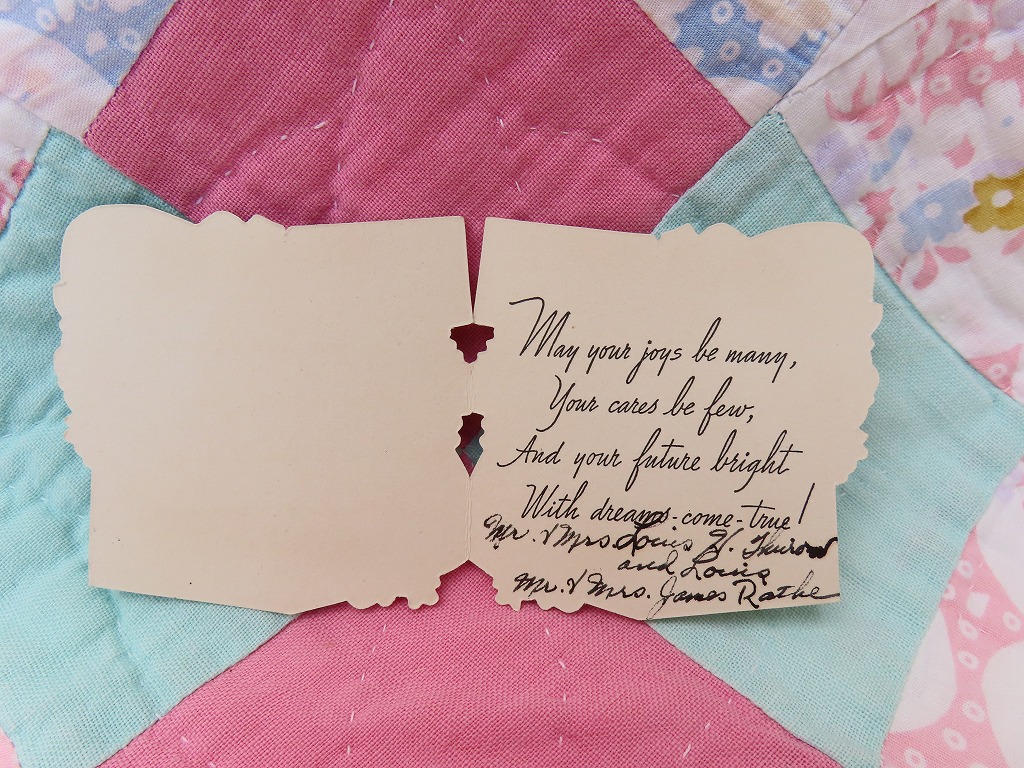 May your joys be many,
Your cares be few,
And your future bright
With dreams-come-true!
Mr. & Mrs. Louis H. Thurow
and Louis
Mr. & Mrs. James Rathe